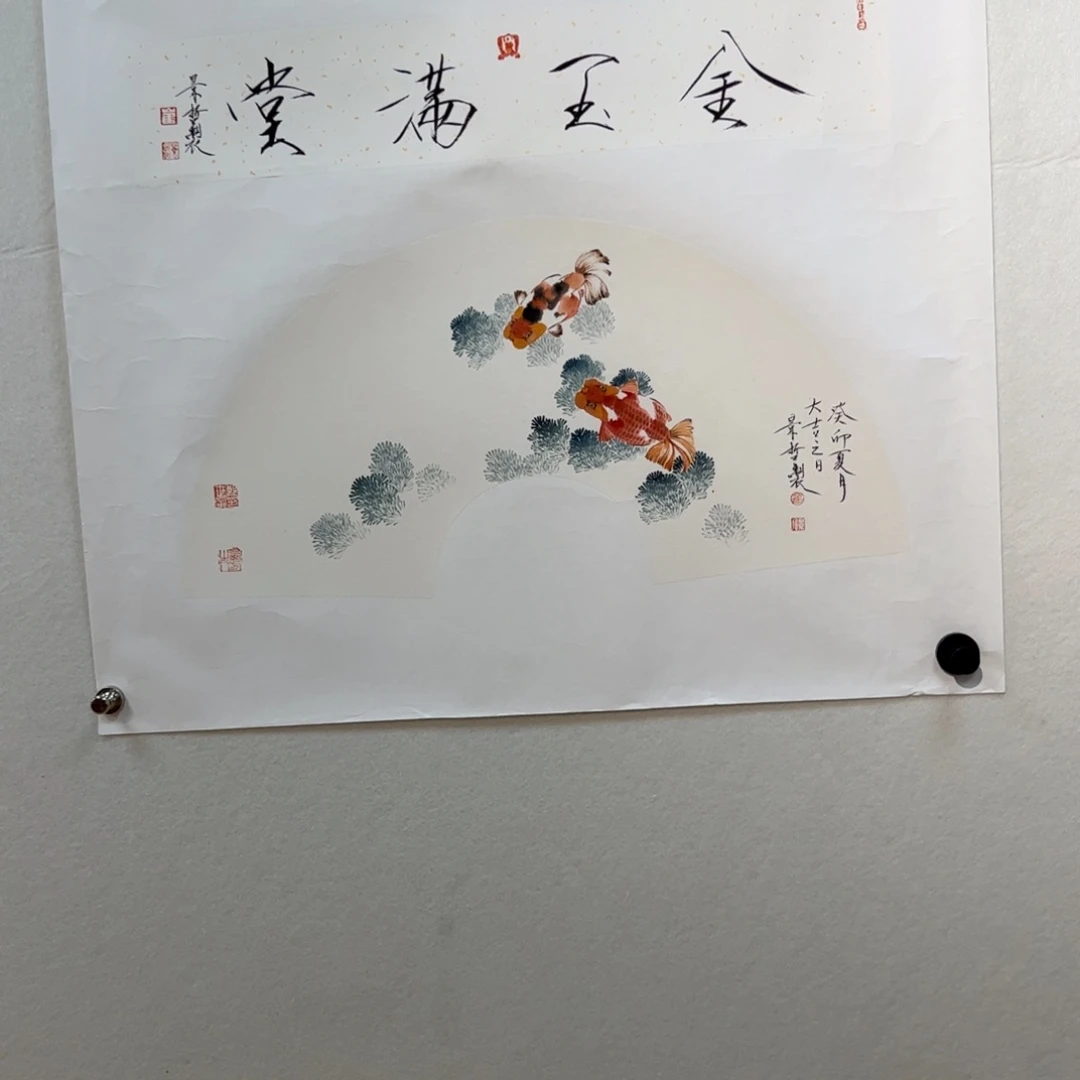 金玉满堂
景哲製
癸卯夏月
大吉之日
景哲製